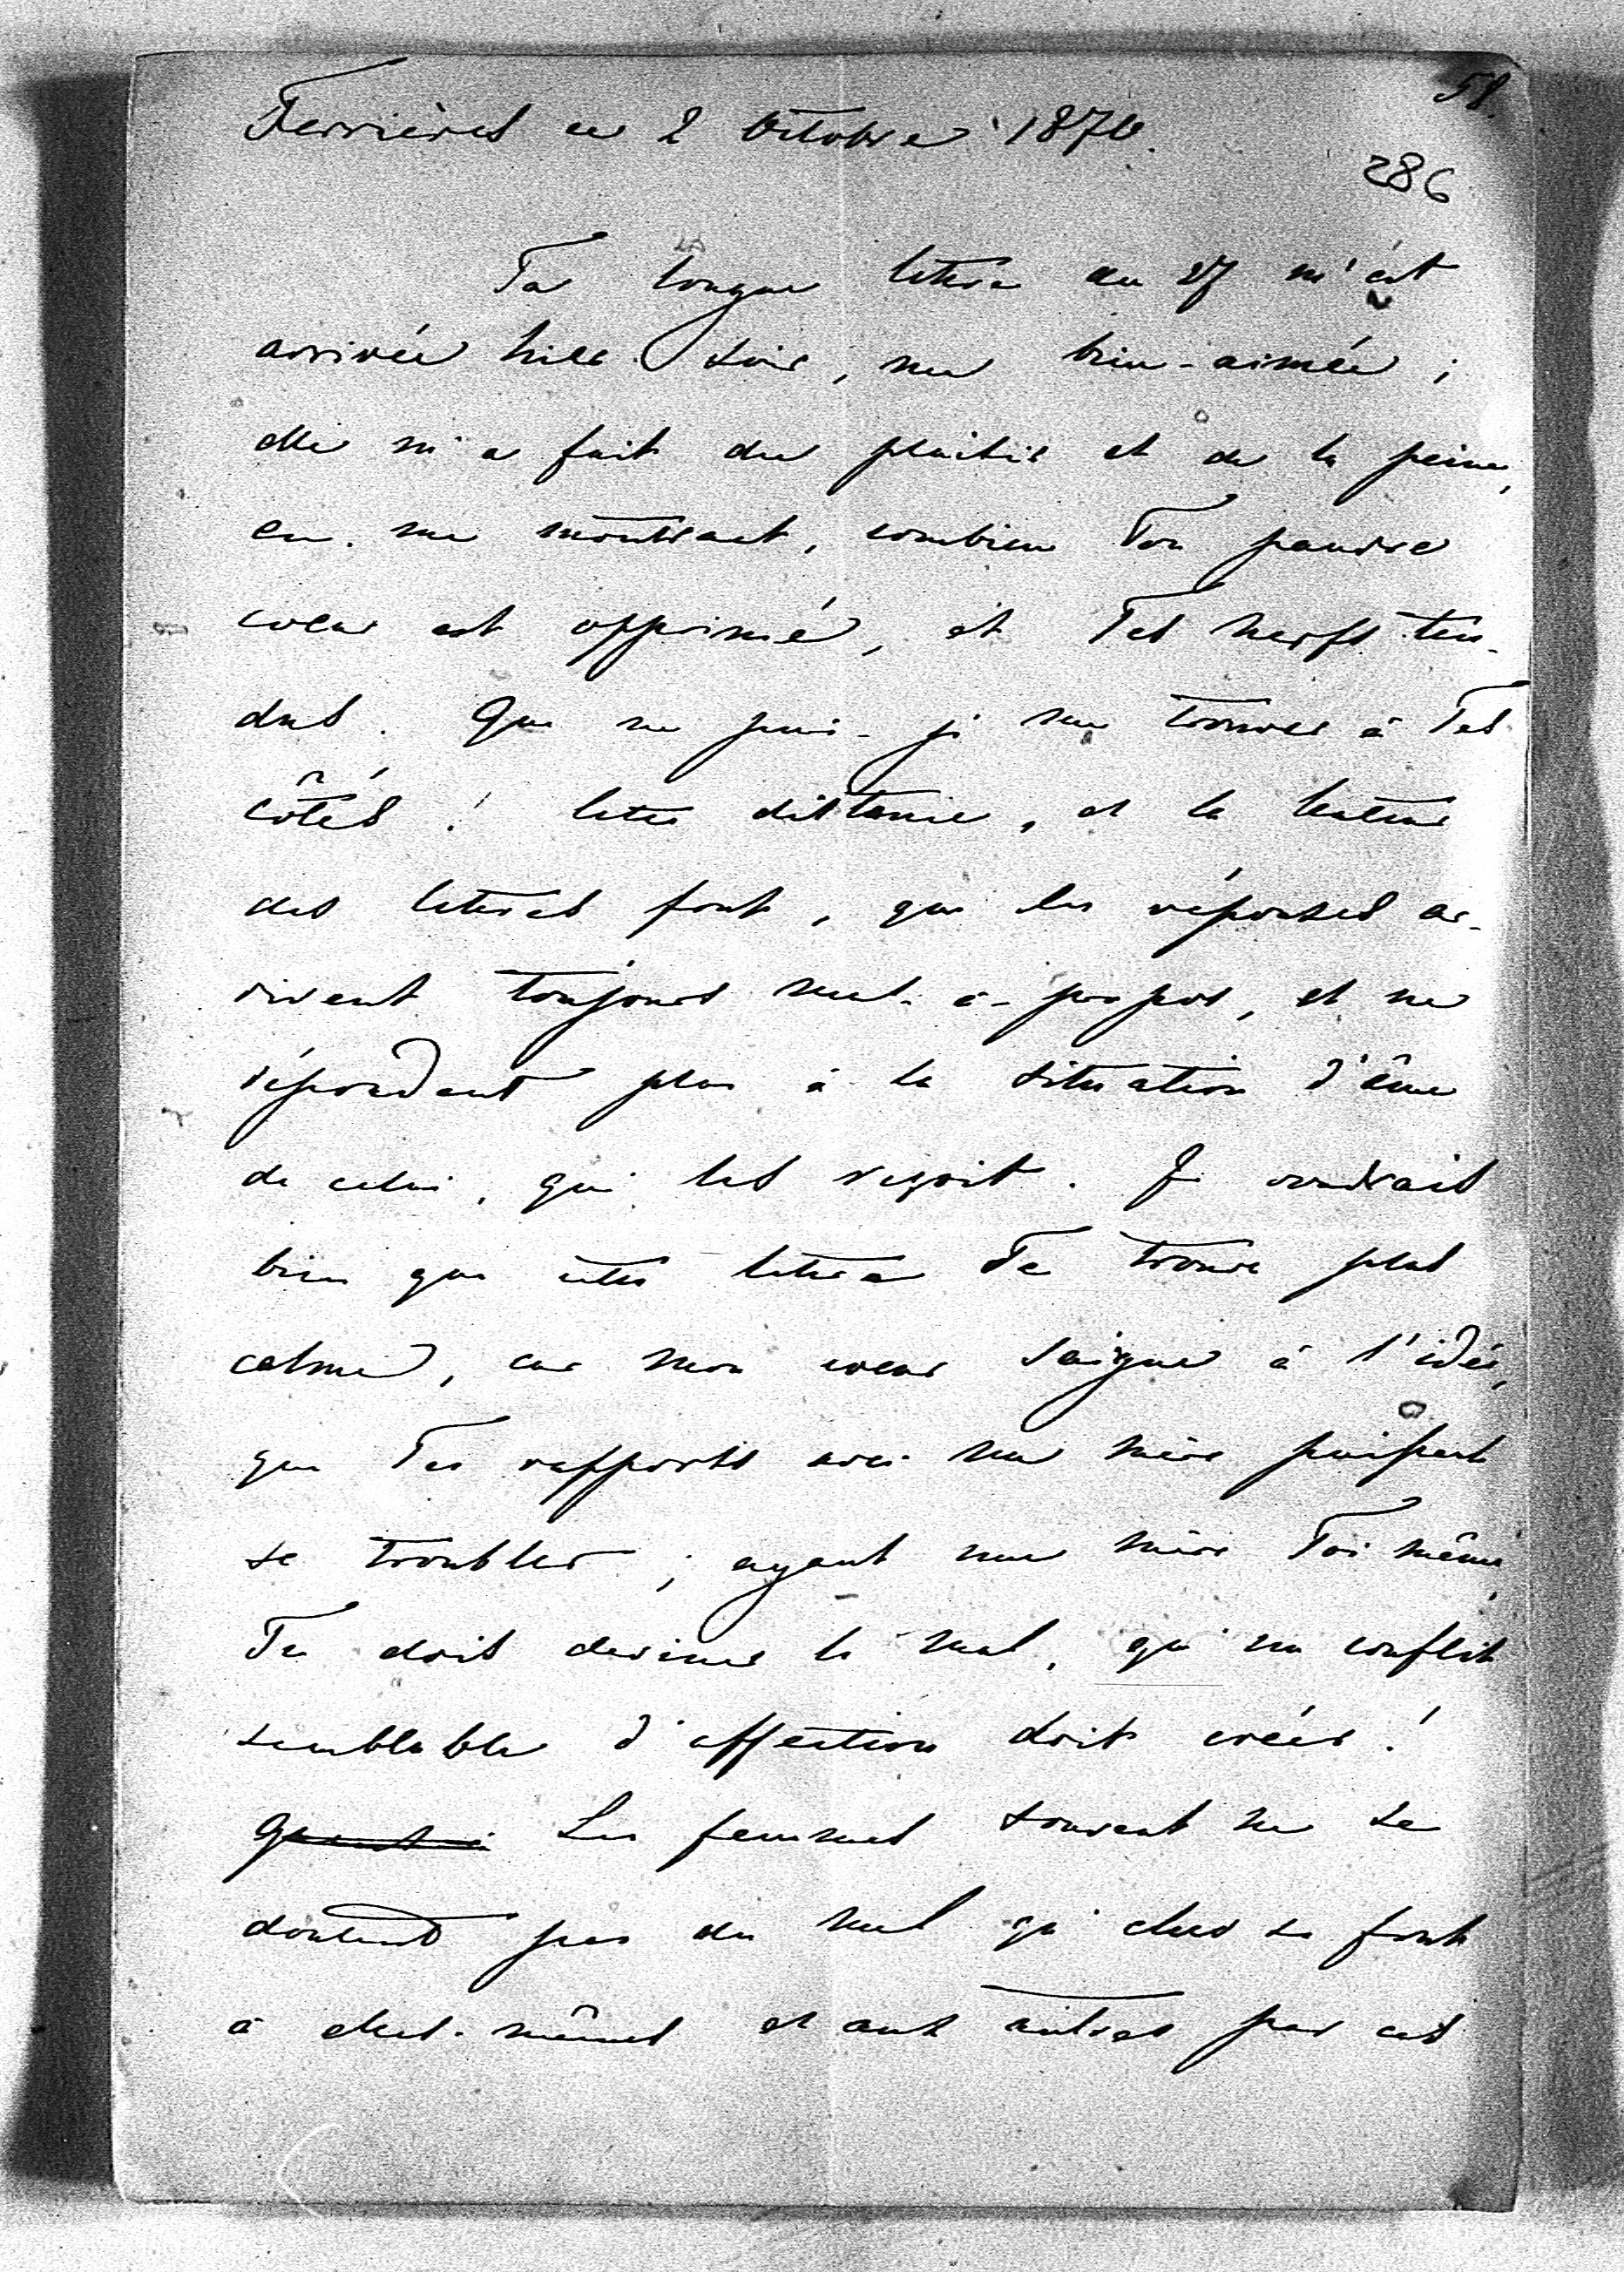 58
Ferrières ce 2 Octobre 1870.
286
Ta longue lettre du 27 m'est
arrivée hier soir, ma bien-aimée ;
elle m'a fait du plaisir et de la peine,
en me montrant, combien Ton pauvre
coeur est opprimé, et Tes nerfs ten-
dus. Que ne puis-je me trouver à Tes
côtés ! Cette distance, et la lenteur
des lettres font, que les réponses ar-
rivent toujours mal-à-propos, et ne
répondent plus à la situation d'âme
de celui, qui les reçoit. Je voudrais
bien que cette lettre Te trouve plus
calme, car mon coeur saigne à l'idée,
que Tes rapports avec ma mère puissent
se troubler ; ayant une mère Toi même,
Tu dois deviner le mal, qu'un conflit
semblable d'affection doit créer !
Quant à Les femmes souvent ne se
doutent pas du mal qu'elles se font
à elles-mêmes et aux autres par ces